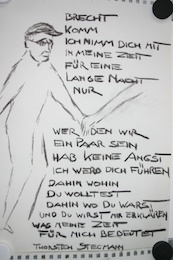 BRECHT
KOMM
ICH NIMM DICH MIT
IN MEINE ZEIT
FÜR EINE
LANGE NACHT
NUR
WERDEN WIR
EIN PAAR SEIN
HAB KEINE ANGST
ICH WERD DICH FÜHREN
DAHIN WOHIN
DU WOLLTEST
DAHIN WO DU WARST
UND DU WIRST MIR ERKLÄREN
WAS MEINE ZEIT
FÜR MICH BEDEUTET
THORSTEN STEGMANN